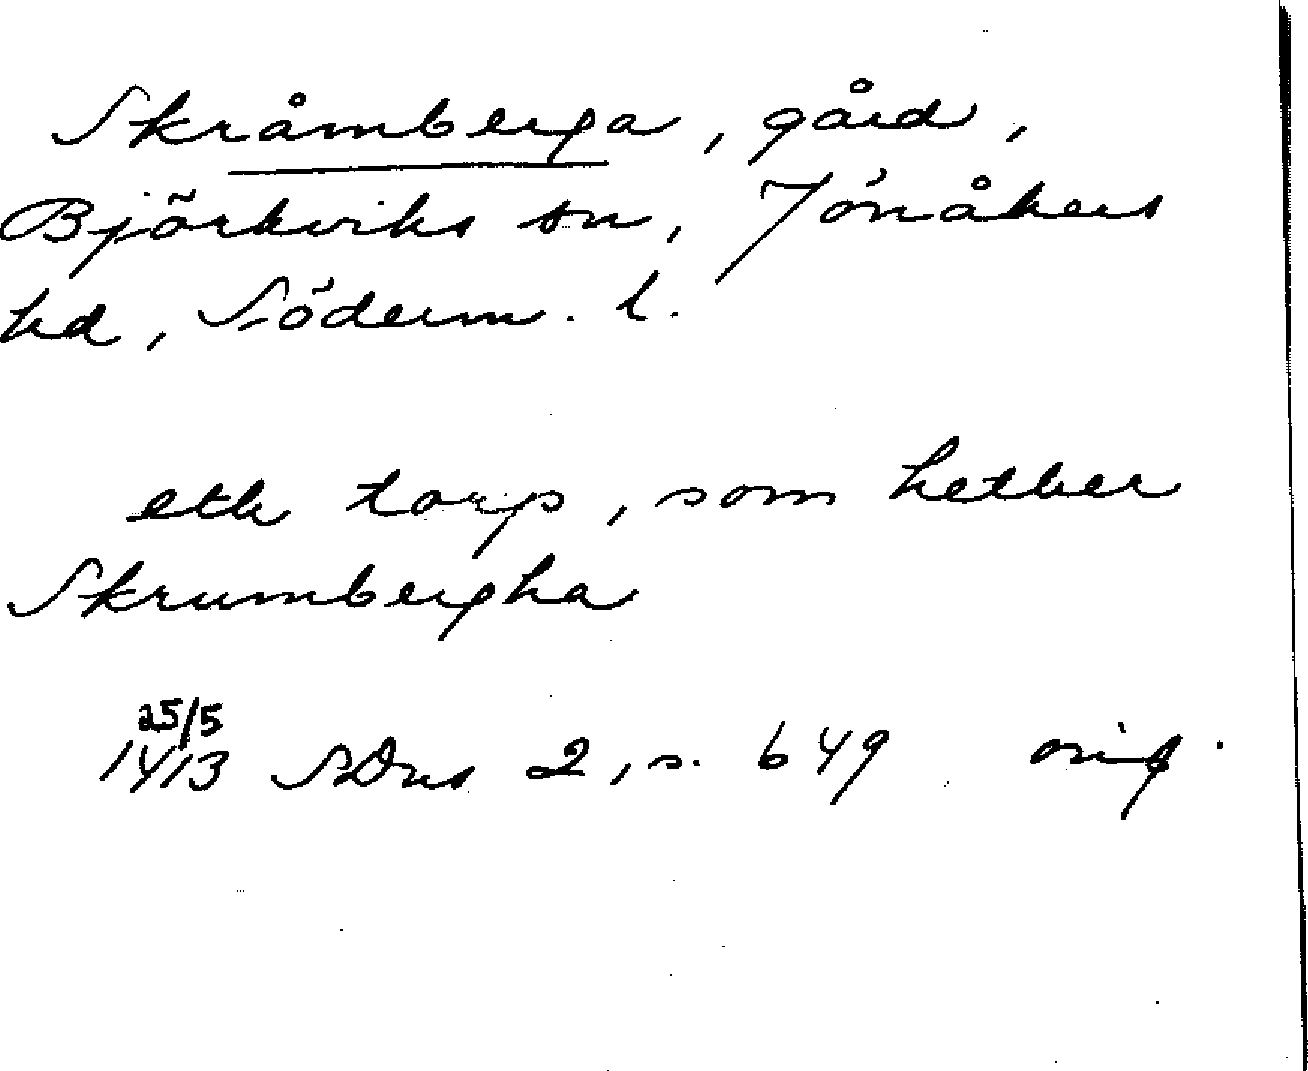 Skråmberga, gård,
Björkviks sn, Jönåkers
hd, Söderm. l.
eth torp, som hether
Skrumbergha
25/5
1413 SDns 2, s. 649 orig.